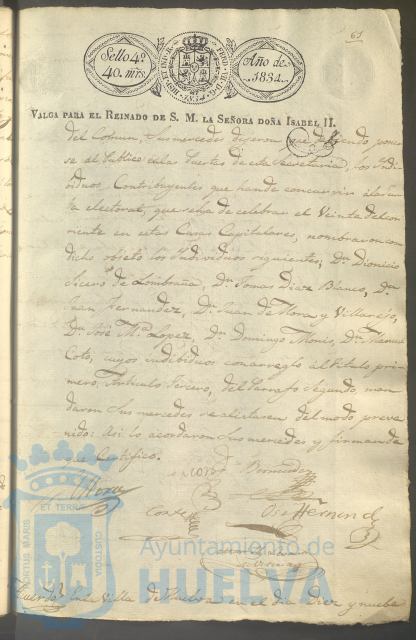 61
Sello 4º
40. mrs.
Año de
1834.
VALGA PARA EL REINADO DE S. M. LA SEÑORA DOÑA ISABEL II.
del Comun, Sus mercedes dijeron que debiendo poner
se al Publico en las Puertas de esta Secretaria, los Indi
viduos, Contribuyentes que han de concurrir a la Jun
ta electoral, que se ha de celebrar el Veinte del cor
riente en estas Casas Capitulares, nombraron con
dicho objeto los Individuos siguientes; Dn. Dionicio
de Lombraña, Dn. Tomas Diaz Blanco, Dn.
Juan Fernandez, Dn. Juan de Mora y Villarejo,
Dn. José Mª. Lopez, Dn. Domingo Monis, Dn. Manuel
Coto, cuyos individuos con arreglo al titulo pri
mero, Articulo tercero, del Parrafo Segundo, man
daron Sus mercedes se alistasen del modo preve
nido: Asi lo acordaron Sus mercedes y firman de
que Certifico.
Bermudez
Mora
Hernand
PORTUS MARIS
ET TERRÆ
CUSTODIA
Ayuntamiento de
HUELVA
En la Villa de Huelva en el dia Diez y nueve